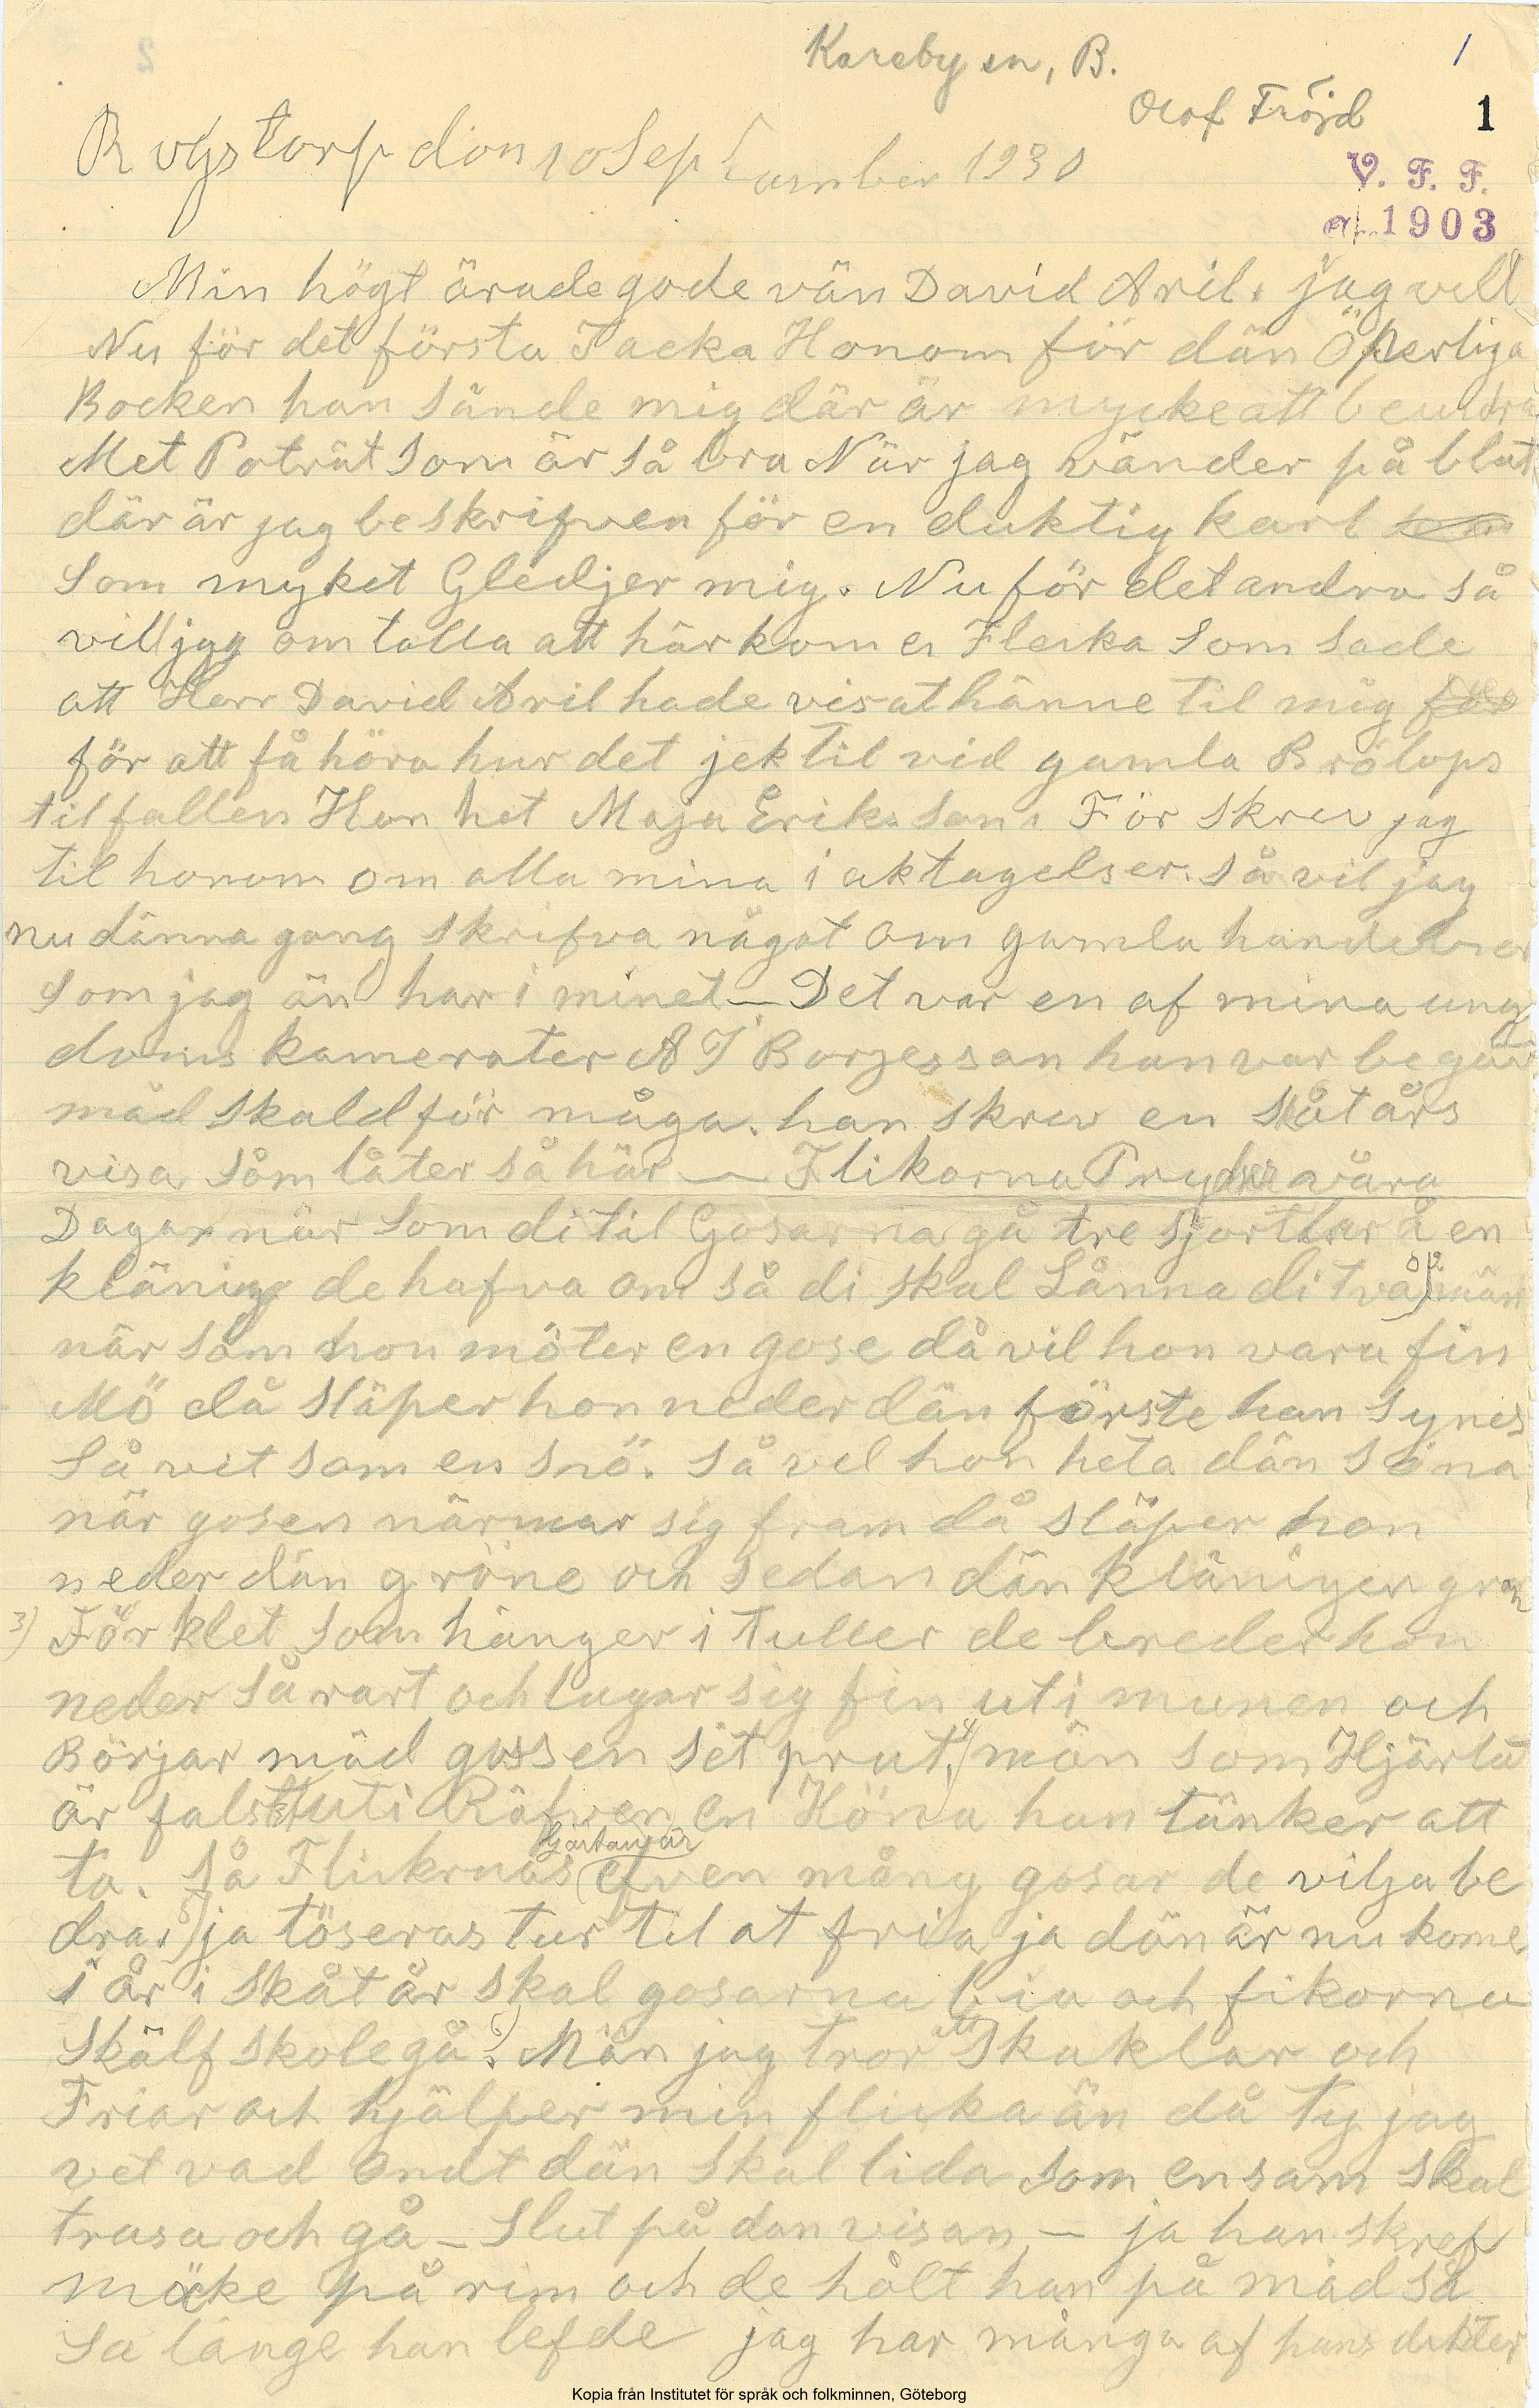 Kareby sn, B.
/
Olof Fröjd
1
Rugstorp dän 10 September 1930
V. F. F.
1903
Min högt ärade gode vän David Aril. jag vill
Nu för det första Tacka Honom för dän Öperliga
Bocken han sände mig där är mycke att beundra
Met Poträt som är så bra När jag vänder på blat
där är jag beskrifven för en duktig karl
som myket Gledjer mig. Nu för det andra så
vill jag omtalla att här kom en Flecka som sade
att Herr David Aril hade visat hänne til mig
för att få höra hur det jek til vid gamla Brölops
tilfallen Hon het Maja Erikson.För skrev jag
til honom om alla mina i aktagelser. så vil jag
nu dänna gang skrifva något om gamla handelser
som jag än har i minet — Det var en af mina ung
doms kamerater A T Borgesson han var begåv
mäd skald för måga. han skrev en skåtårs
visa såm låter så här — Flikorna Pryder våra
Dagar når som di til Gosarna gå tre sjortlar å en
kläning de hafva om så di skal Lånna di två 2) män
når såm hon möter en gose då vil hon vara fin
Mö då släper hon neder dän förste han synes
så vit som en snö. så vel hon heta dän sköna
når gosen närmar sig fram då släper hon
neder dän gröne och sedan dän kläningen gran
3) Förklet som hänger i tuller de breder hon
neder så rart och lagar sig fin uti munen och
Börjar mäd gossen sit prat. 4) män som Hjärtat
är falskt uti Räfven en Höna han tänker att
ta. så Flickrnas hjärtan är efven mång gosar de vilja be
dra. 5) ja töseras tur til at fria ja dän är nu kome
i år i skåtår skal gosarna bia och fikorna
skälf skole gå. 6) Män jag tror att skaklar och
Friar och hjälper min flicka än då ty jag
vet vad ondt dän skal lida som ensam skal
trasa och gå — Slut på dan visan — ja han skref
möcke på rim och de hålt han på mäd så
sa länge han lefde jag har många af hans dikter
Kopia från Institutet för språk och folkminnen, Göteborg